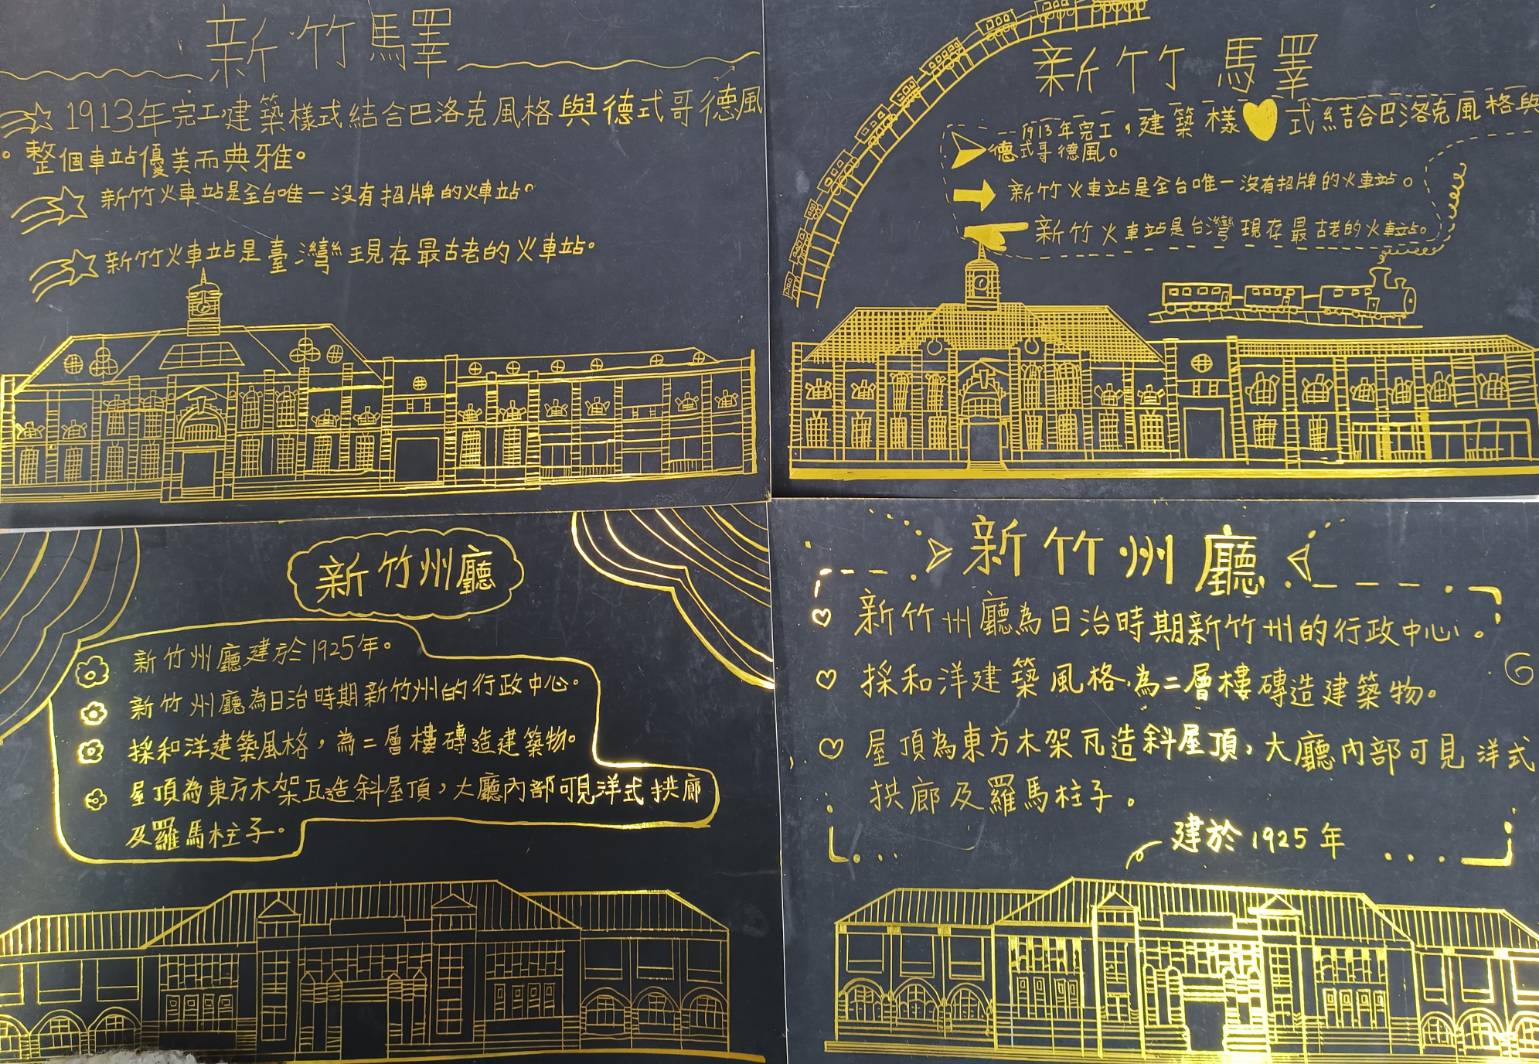 新竹驛
1913年完工建築樣式結合巴洛克風格與德式哥德風
。整個車站優美而典雅。
新竹火車站是全台唯一沒有招牌的火車站。
新竹火車站是臺灣現存最古老的火車站。
新竹驛
1913年完工，建築樣式結合巴洛克風格與
德式哥德風。
新竹火車站是全台唯一沒有招牌的火車站。
新竹火車站是台灣現存最古老的火車站。
新竹州廳
新竹州廳建於1925年。
新竹州廳為日治時期新竹州的行政中心。
採和洋建築風格，為二層樓磚造建築物。
屋頂為東方木架瓦造斜屋頂，大廳內部可見洋式拱廊
及羅馬柱子。
新竹州廳
新竹州廳為日治時期新竹州的行政中心。
採和洋建築風格，為二層樓磚造建築物。
屋頂為東方木架瓦造斜屋頂，大廳內部可見洋式
拱廊及羅馬柱子。
建於1925年